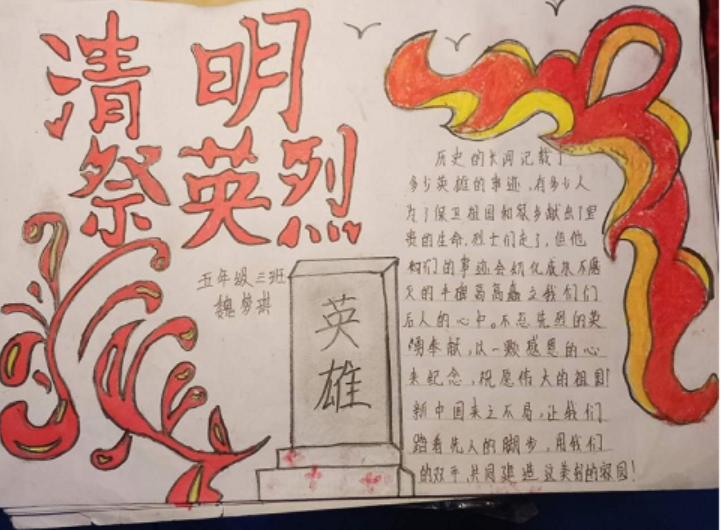 清明
祭英烈
五年级三班
魏梦琪
英
雄
历史的长河记载了
多少英雄的事迹,有多少人
为了保卫祖国和家乡献出了宝
贵的生命,烈士们走了,但他
们的事迹会幻化成永不磨
灭的丰碑高高矗立我们们
后人的心中。不忘先烈的英
勇奉献,以一颗感恩的心
来纪念,祝愿伟大的祖国!
新中国来之不易,让我们
踏着先人的脚步,用我们
的双手,共同建造这美好的家园!